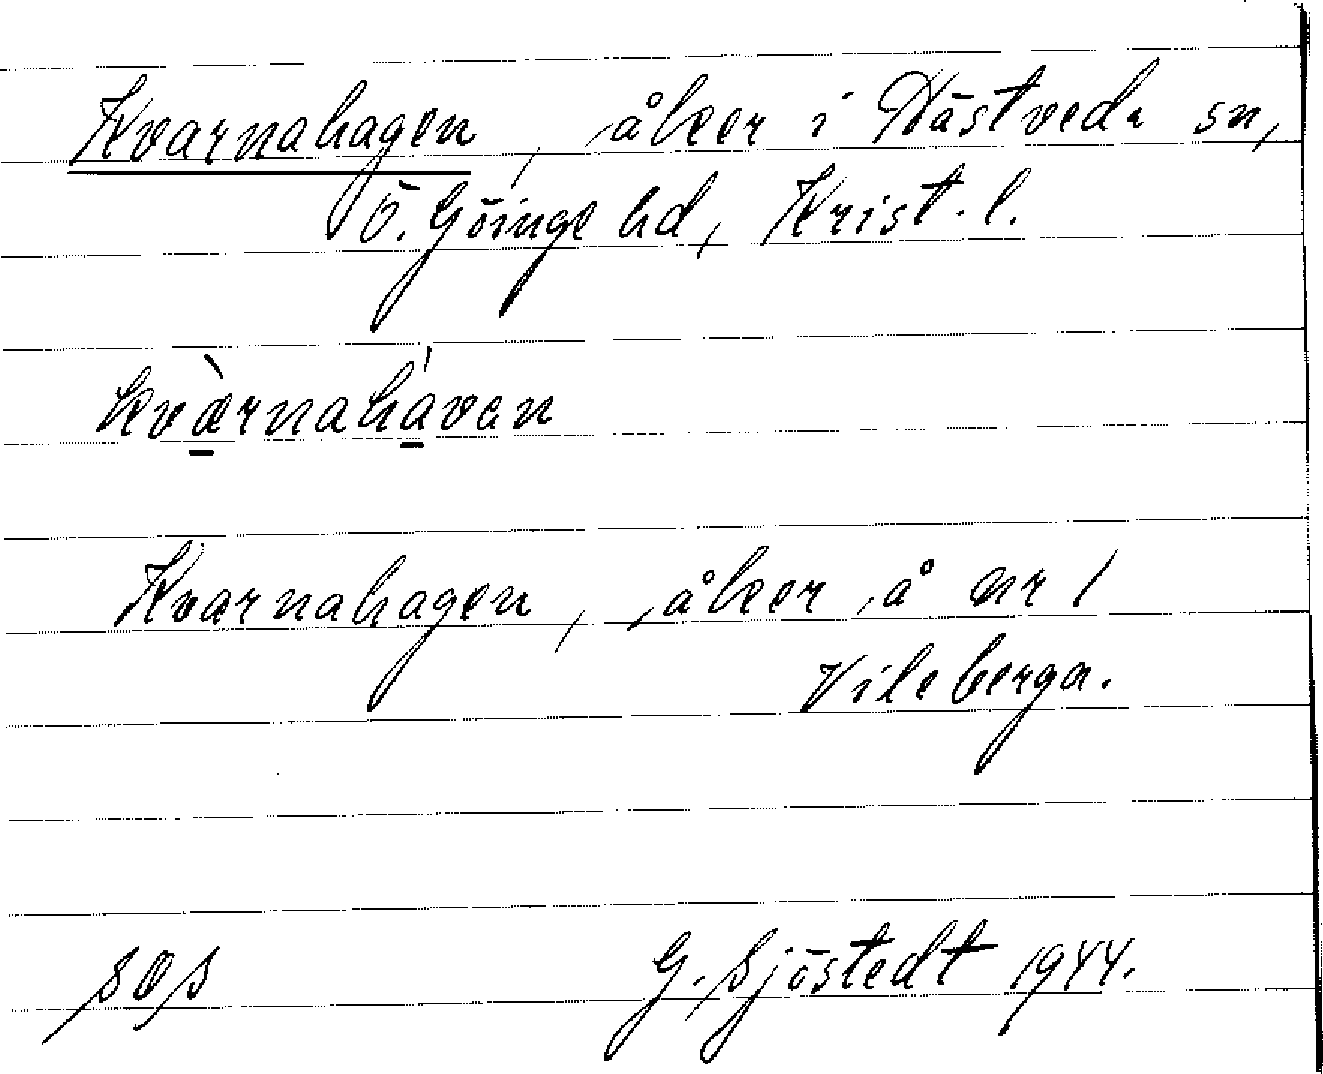 Kvarnahagen, åker i Hästveda sn,
Ö. Göinge hd, Krist. l.
kvàrnahávan
Kvarnahagen, åker å nr 1
Vileberga.
sos G. Sjöstedt 1944.